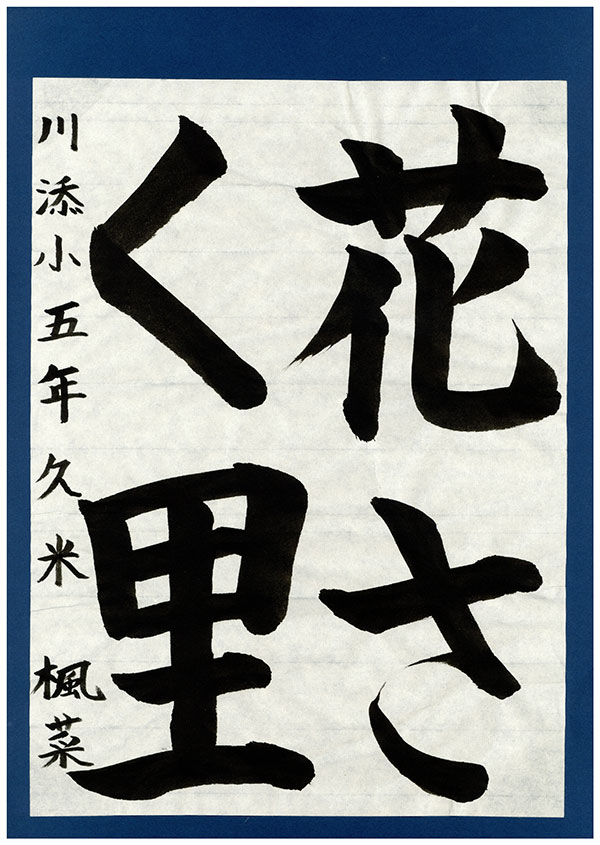 花さ
く里
川添小五年久米楓菜